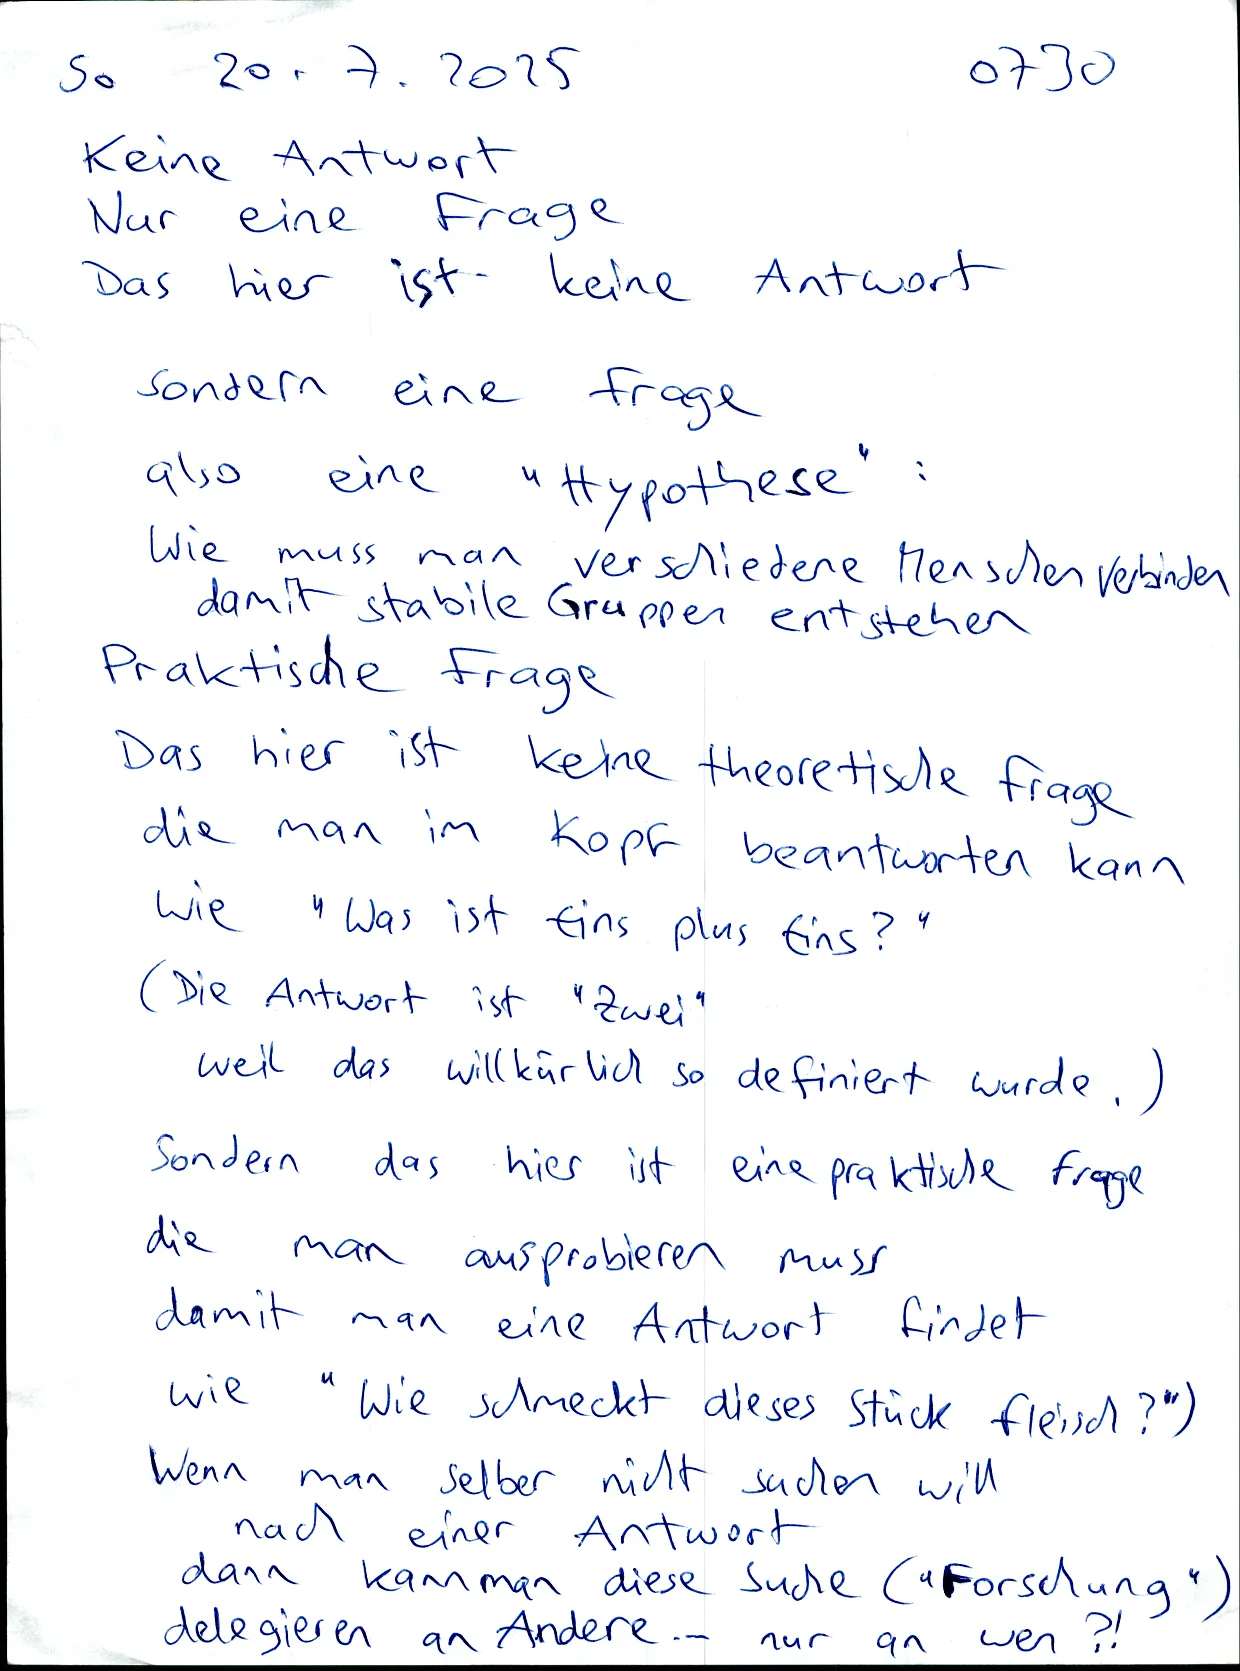 So 20.7.2025 0730
Keine Antwort
Nur eine Frage
Das hier ist keine Antwort
sondern eine Frage
also eine "Hypothese":
Wie muss man verschiedene Menschen verbinden
damit stabile Gruppen entstehen
Praktische Frage
Das hier ist keine theoretische Frage
die man im Kopf beantworten kann
wie "Was ist Eins plus Eins?"
(Die Antwort ist "Zwei"
weil das willkürlich so definiert wurde.)
Sondern das hier ist eine praktische Frage
die man ausprobieren muss
damit man eine Antwort findet
wie "Wie schmeckt dieses Stück Fleisch?")
Wenn man selber nicht suchen will
nach einer Antwort
dann kann man diese Suche ("Forschung")
delegieren an Andere -- nur an wen ?!